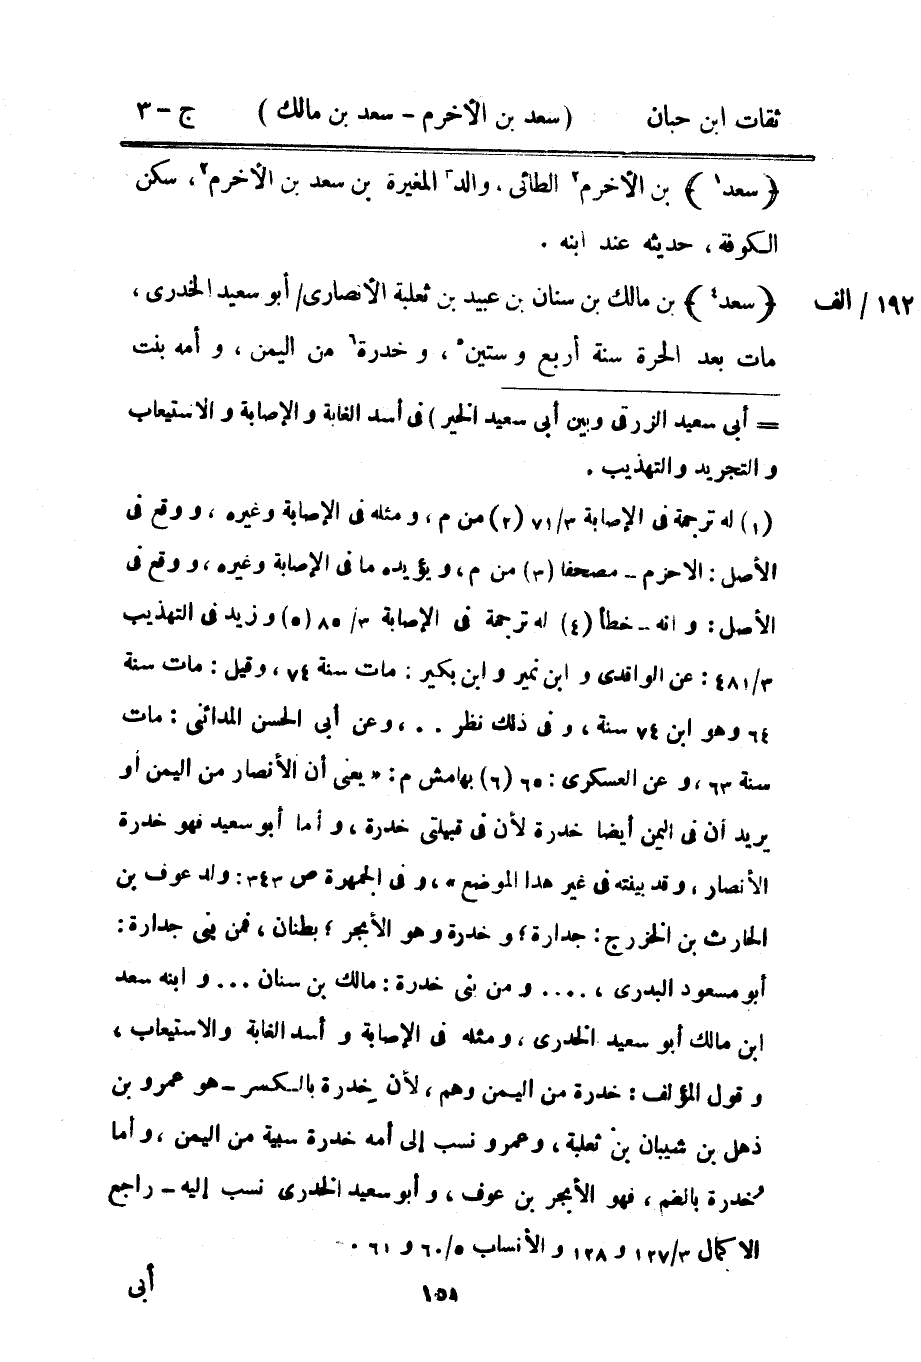 ثقات ابن حبان (سعد بن الأخرم - سعد بن مالك) ج - ٣
﴿سعد١﴾ بن الأخرم٢ الطائى، والد٣ المغيرة بن سعد بن الأخرم٢، سكن
الكوفة، حديثه عند ابنه.
﴿سعد٤﴾ بن مالك بن سنان بن عبيد بن ثعلبة الأنصارى/ أبو سعيد الخدرى، ١٩٢/ الف
مات بعد الحرة سنة أربع وستين٥، و خدرة٦ من اليمن، و أمه بنت
= أبى سعيد الزرقى وبين أبى سعيد الخير) فى أسد الغابة و الإصابة و الاستيعاب
و التجريد والتهذيب.
(١) له ترجمة فى الإصابة ٧١/٣ (٢) من م، و مثله فى الإصابة وغيره، و وقع فى
الأصل: الاحزم - مصحفا (٣) من م، و يؤيده ما فى الإصابة وغيره، و وقع فى
الأصل: و انه - خطأ (٤) له ترجمة فى الإصابة ٨٥/٣ (٥) و زيد فى التهذيب
٤٨١/٣: عن الواقدى و ابن نمير و ابن بكير: مات سنة ٧٤، وقيل: مات سنة
٦٤ وهو ابن ٧٤ سنة، و فى ذلك نظر . .، وعن أبى الحسن المدائنى: مات
سنة ٦٣، و عن العسكرى: ٦٥ (٦) بهامش م: « يعنى أن الأنصار من اليمن أو
يريد أن فى اليمن أيضا خدرة لأن فى قبيلتى خدرة، و أما أبو سعيد فهو خدرة
الأنصار، و قد بيفته فى غير هذا الموضع »، و فى الجمهرة ص ٣٤٣: ولد عوف بن
الحارث بن الخزرج: جدارة؛ و خدرة و هو الأبجر؛ بطنان، فمن بنى جدارة:
أبو مسعود البدرى، .... و من بنى خدرة: مالك بن سنان ... و ابنه سعد
ابن مالك أبو سعيد الخدرى، و مثله فى الإصابة و أسد الغابة والاستيعاب،
و قول المؤلف: خدرة من اليمن وهم، لأن خِدرة بالكسر - هو عمرو بن
ذهل بن شيبان بن ثعلبة، و عمرو نسب إلى أمه خدرة سبية من اليمن، و أما
خُدرة بالضم، فهو الأبجر بن عوف، و أبو سعيد الخدرى نسب إليه - راجع
الاكمال ١٢٧/٣ و ١٢٨ و الأنساب ٦٠/٥ و ٦١.
١٥٨ أبى